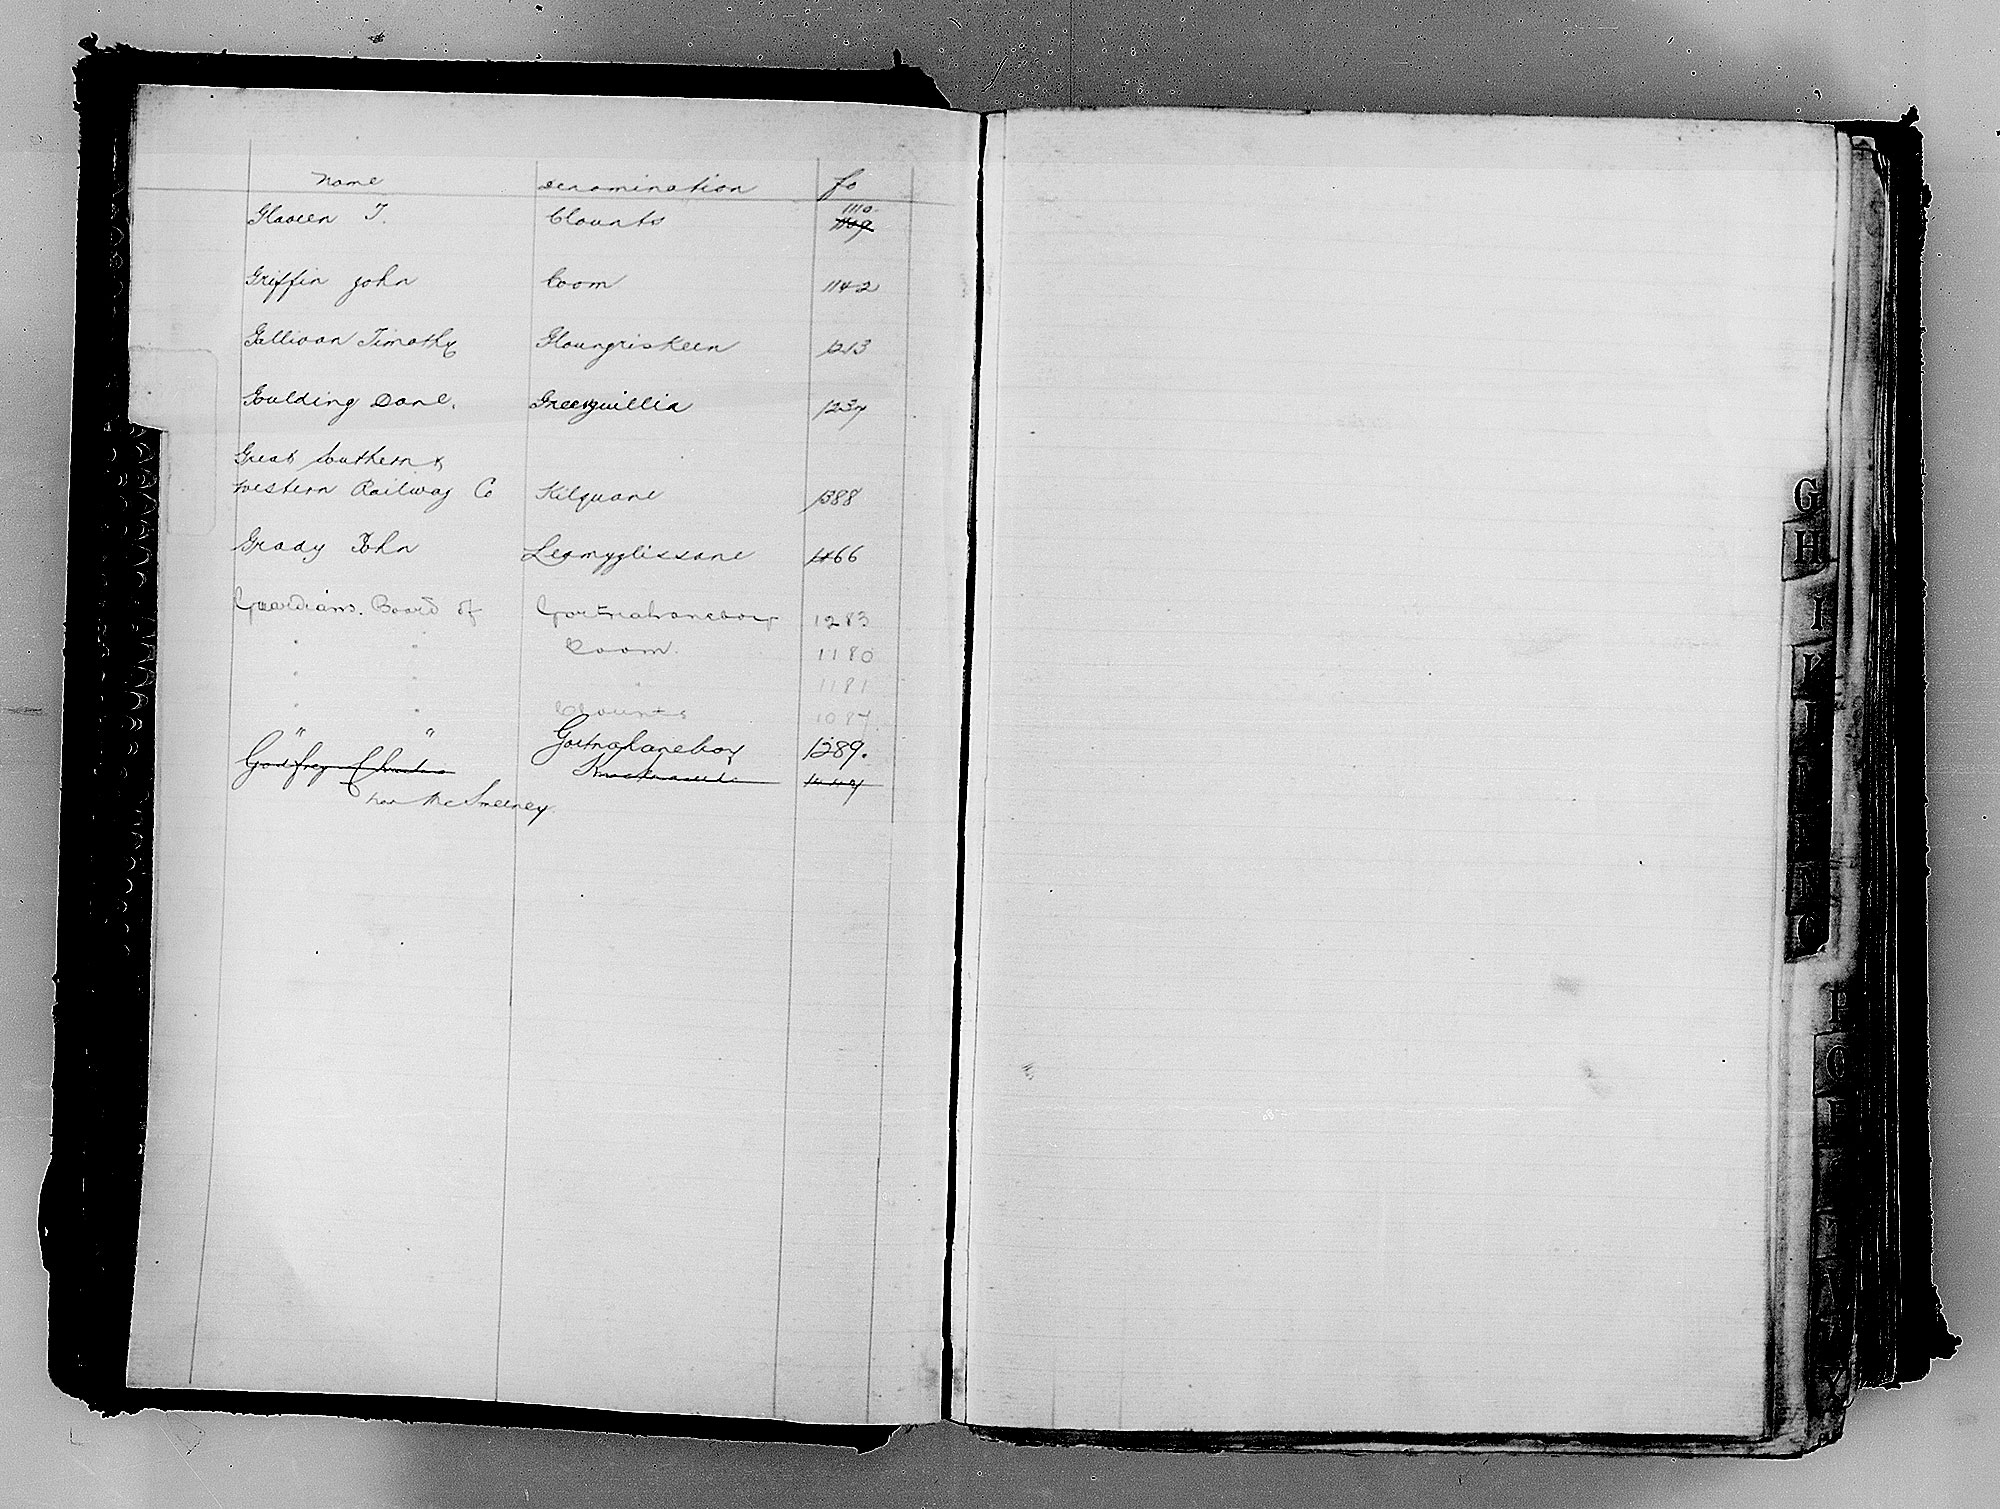 Name Denomination fo
Glaveen T. Clounts 1110. 1109
Griffin John Coom 1142
Gallivan Timothy Gloungriskeen 1213
Goulding Danl. Greerguillia 1237
Great Southern &
Western Railway Co Kilquane 1388
Grady John Leamyglissane 1466
Guardians. Board of Gortnahaneboy 1283
" " Coom. 1180
" " " 1181
" " Clounts 1087
" " Gortnahaneboy 1289.
Godfrey
now McSweeney
G
H
I
K